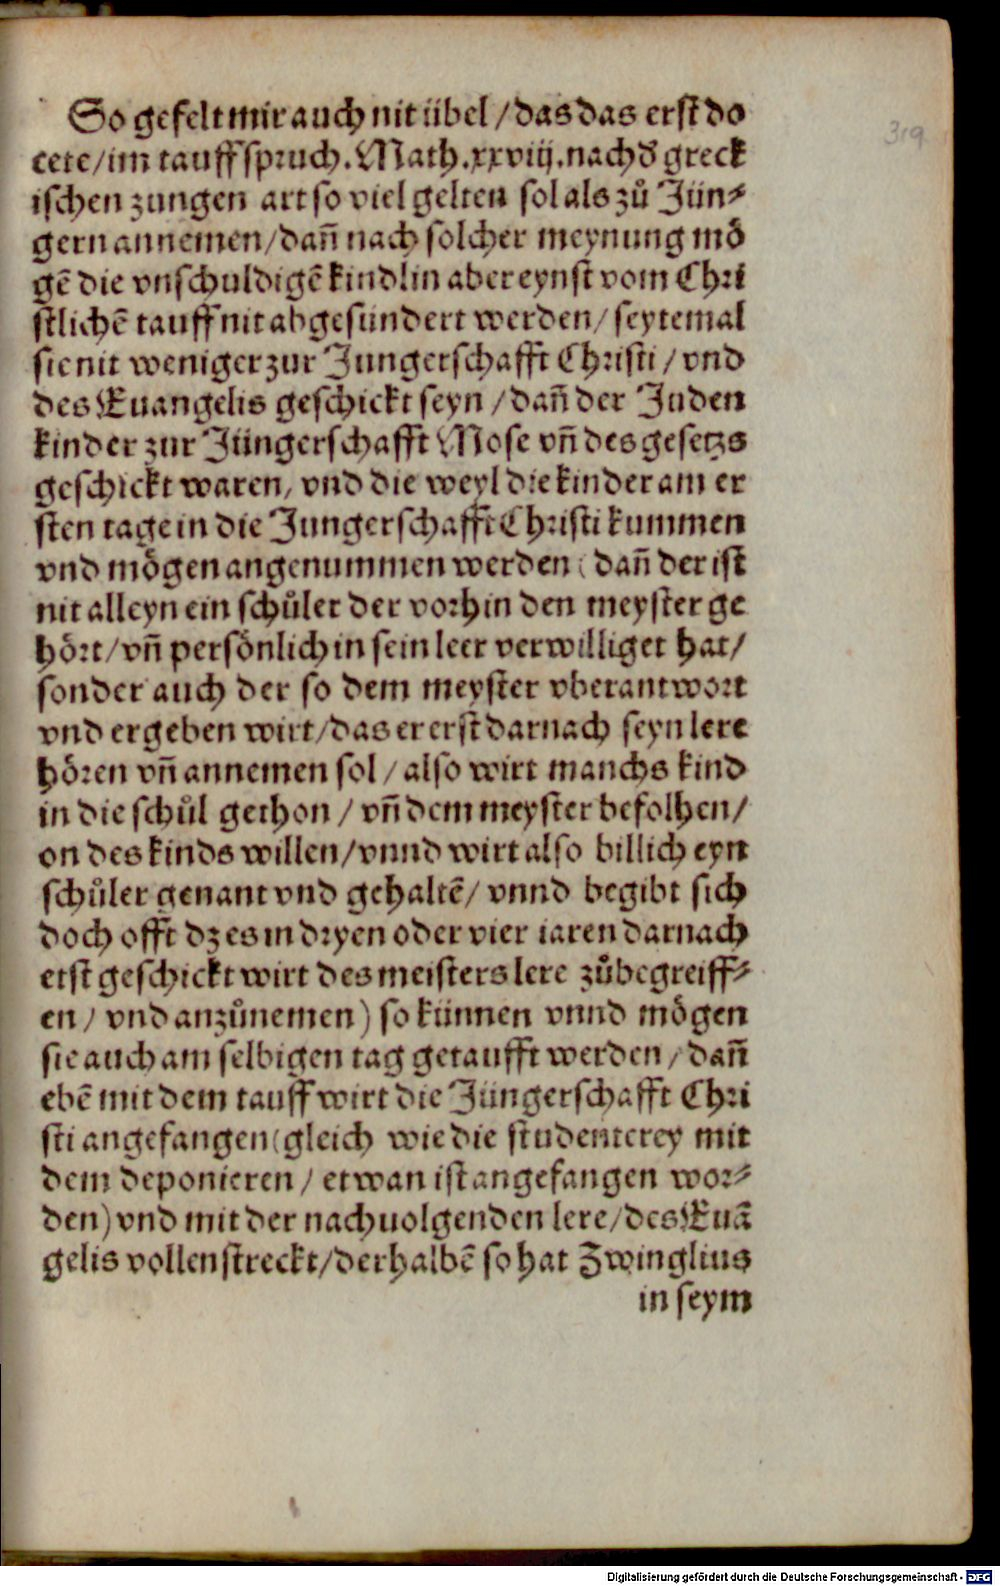 So gefelt mir auch nit übel / das das erst do
cete / im tauffspruch. Math. xxviij. nach d̕ greck
ischen zungen art so viel gelten sol als zů Jün⸗
gern annemen / dañ nach solcher meynung mö
gē die vnschuldigē kindlin aber eynst vom Chri
stlichē tauff nit abgesundert werden / seytemal
sie nit weniger zur Jungerschafft Christi / vnd
des Euangelis geschickt seyn / dañ der Juden
kinder zur Jüngerschafft Mose vñ des gesetzs
geschickt waren, vnd die weyl die kinder am er
sten tage in die Jungerschafft Christi kummen
vnd mögen angenummen werden ( dañ der ist
nit alleyn ein schůler der vorhin den meyster ge
hört / vñ persönlich in sein leer verwilliget hat /
sonder auch der so dem meyster vberantwort
vnd ergeben wirt / das er erst darnach seyn lere
hören vñ annemen sol / also wirt manchs kind
in die schůl gethon / vñ dem meyster befolhen /
on des kinds willen / vnnd wirt also billich eyn
schůler genant vnd gehaltē / vnnd begibt sich
doch offt dz es in dryen oder vier iaren darnach
erst geschickt wirt des meisters lere zůbegreiff⸗
en / vnd anzůnemen ) so künnen vnnd mögen
sie auch am selbigen tag getaufft werden / dañ
ebē mit dem tauff wirt die Jüngerschafft Chri
sti angefangen ( gleich wie die studenterey mit
dem deponieren / etwan ist angefangen wor⸗
den ) vnd mit der nachuolgenden lere / des Euā
gelis vollenstreckt / derhalbē so hat Zwinglius
in seym
319
Digitalisierung gefördert durch die Deutsche Forschungsgemeinschaft - DFG